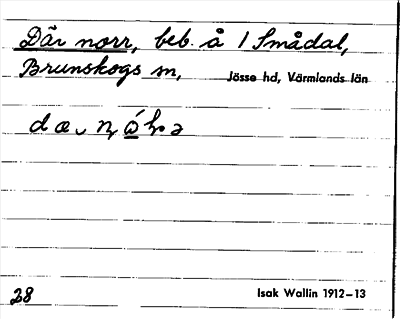 Där norr, beb. å 1 Smådal,
Brunskogs sn, Jösse hd, Värmlands län
28 Isak Wallin 1912–13